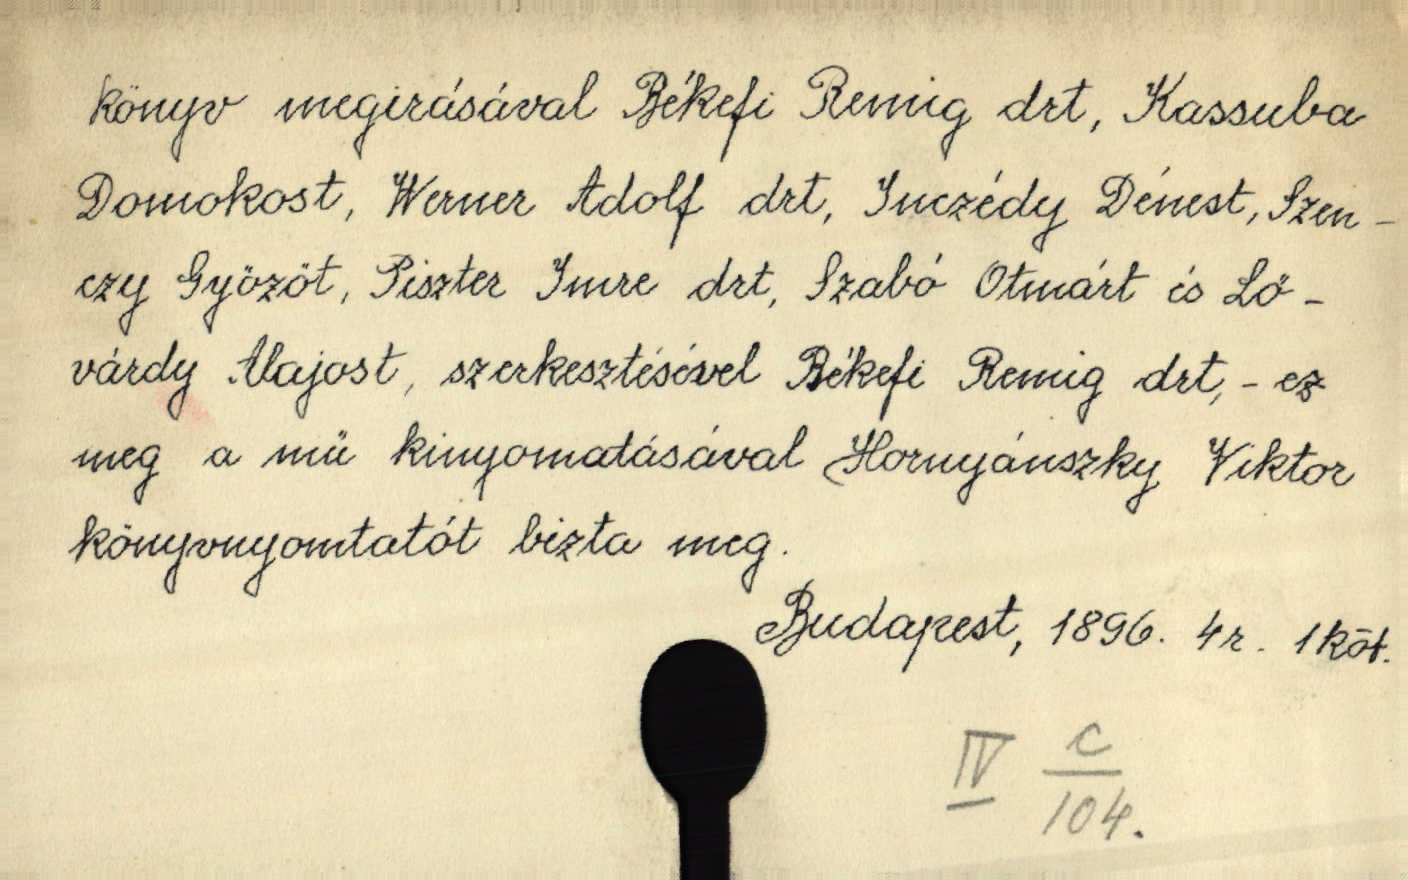 könyv megirásával Békefi Remig drt, Kassuba
Domokost, Werner Adolf drt, Inczédy Dénest, Szen-
czy Győzőt, Piszter Imre drt, Szabó Otmárt és Ló-
várdy Alajost, szerkesztésével Békefi Remig drt, - ez
meg a mű kinyomatásával Hornyánszky Viktor
könyvnyomtatót bizta meg.
Budapest, 1896. 4r. 1 köt.
IV c
104.